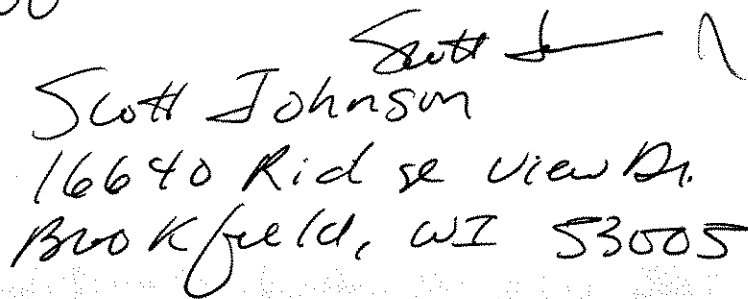 Scott J
Scott Johnson
16640 Ridge View Dr.
Brookfield, WI 53005